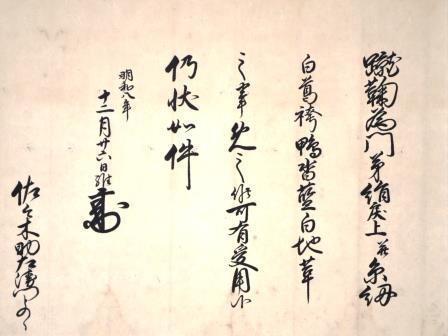 蹴鞠為門弟絹上并糸紐
白葛袴鴨沓藍白地革
之事免之候可有受用候
仍状如件
明和八年
十二月廿六日
佐々木助左衛門との